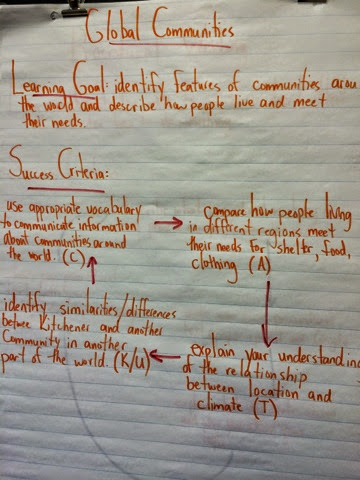 Global Communities
Learning Goal: identify features of communities arou
the world and describe how people live and meet
their needs.
Success Criteria:
use appropriate vocabulary
to communicate information
about communities around
the world. (C)
compare how people living
in different regions meet
their needs for shelter, food,
clothing (A)
explain your understanding
of the relationship
between location and
climate (T)
identify similarities/differences
betwee Kitchener and another
Community in another
part of the world. (K/U)